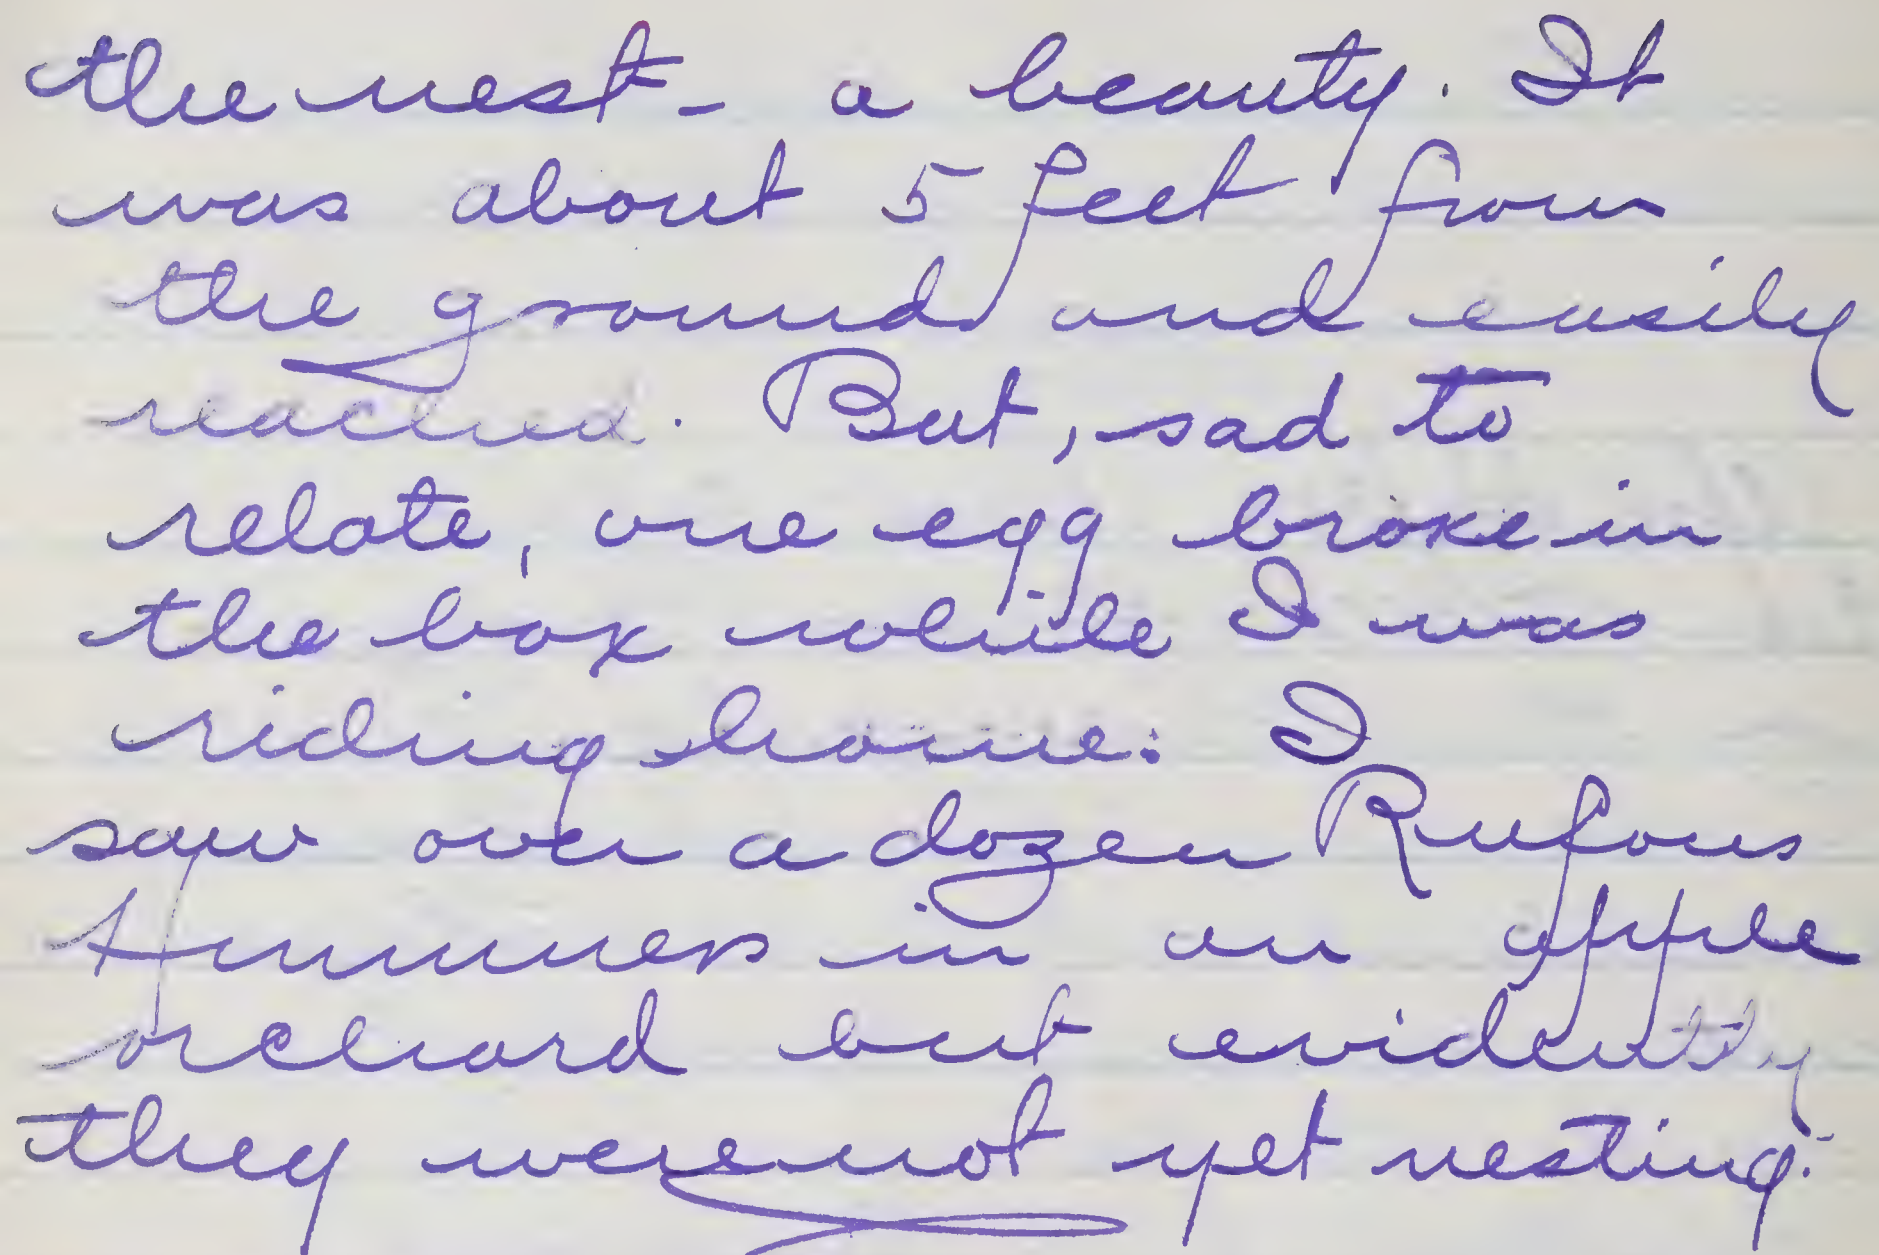 the nest - a beauty. It
was about 5 feet from
the ground and easily
reached. But, sad to
relate, one egg broke in
the box while I was
riding home: I
saw over a dozen Rufous
Hummers in an apple
orchard but evidently
they were not yet nesting.